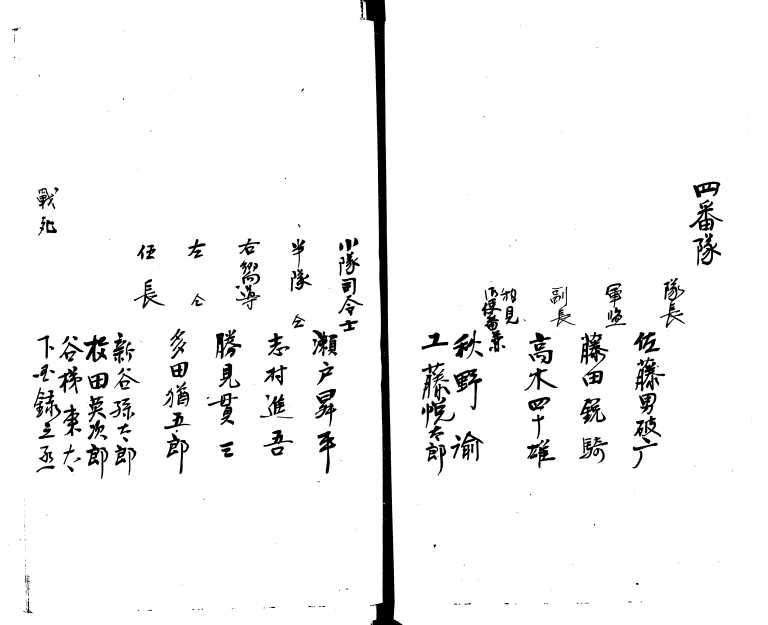 四番隊
隊長
佐藤男破广
軍監
藤田鋭騎
副長
高木四十雄
秋野諭
工藤悦太郎
小隊司令士
瀬戸昇平
半隊仝
志村進吾
右嚮導
勝見貫三
左仝
多田猶五郎
伍長
新谷孫太郎
枚田英次郎
谷梯東太
戦死
下録之丞